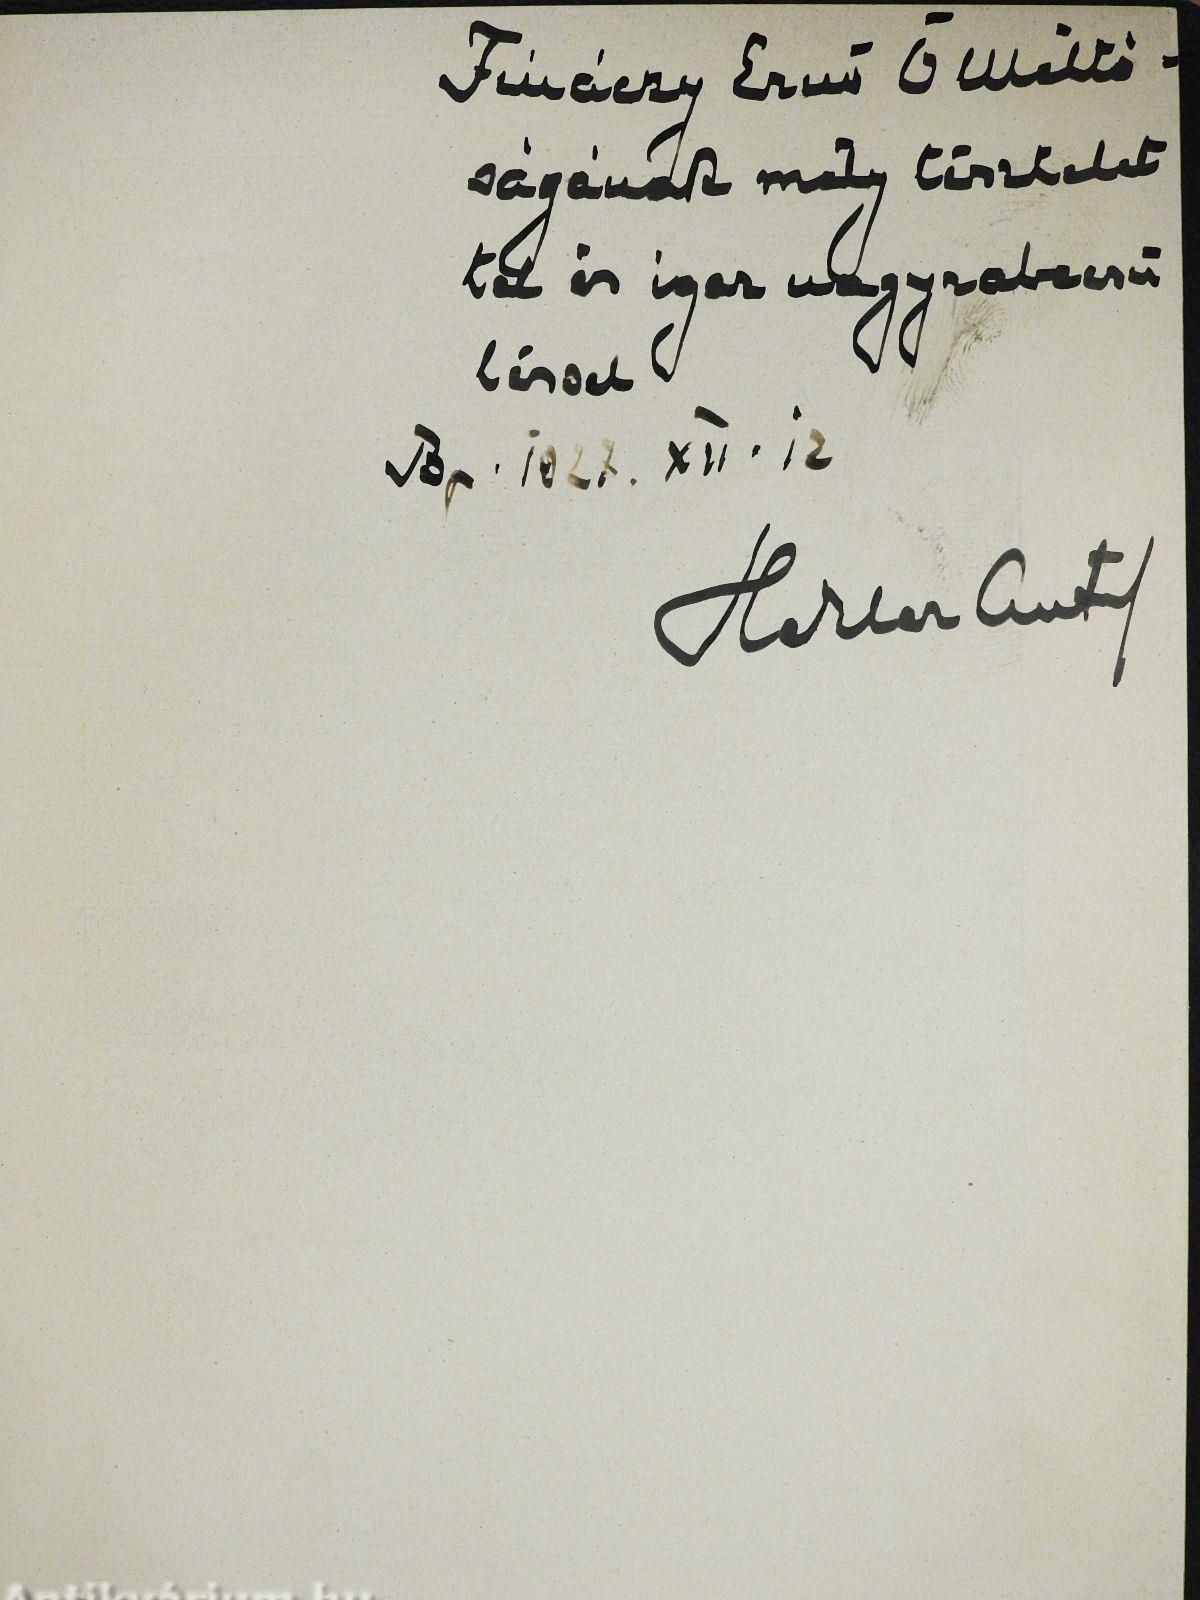 Fináczy Ernő Ő Méltó-
ságának mély tisztelet
tel és igaz nagyrabecsü
léssel
Bp. 1927. XII. 12
Hekler Antal
Antikvárium.hu